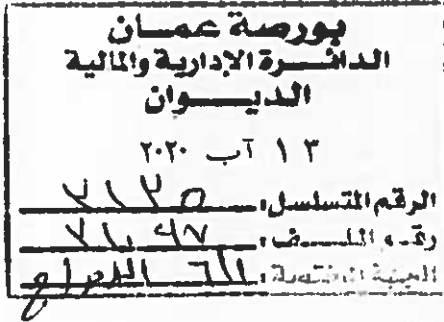 بورصة عمان
الدائرة الإدارية والمالية
الديوان
١٣ آب ٢٠٢٠
الرقم المتسلسل:
رقم الملف:
الجهة المختصة: الإدراج